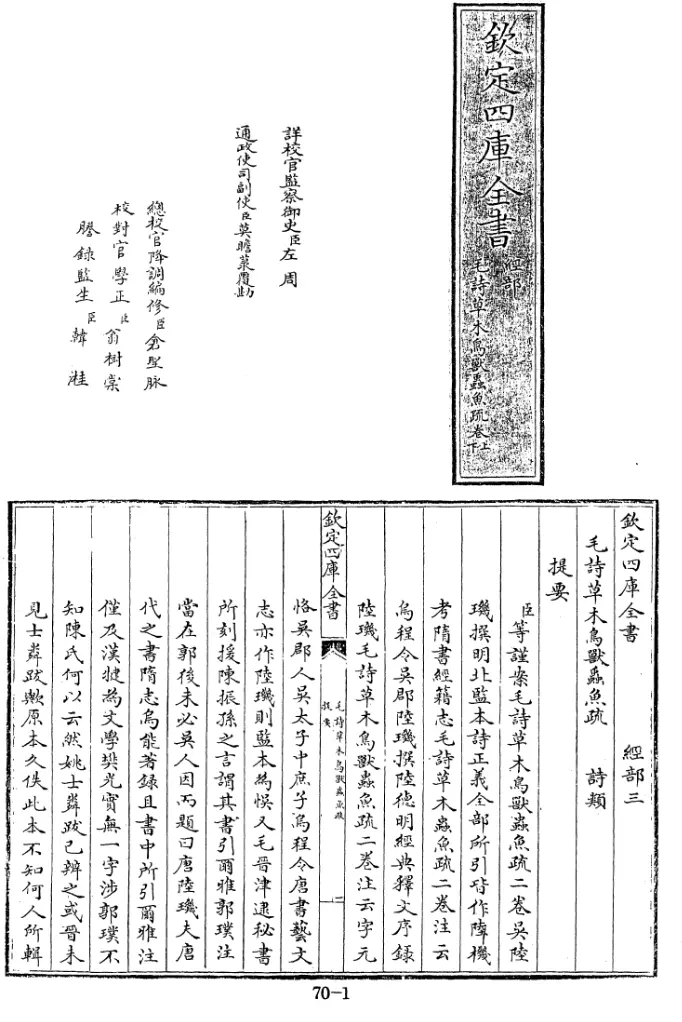 欽定四庫全書
經部
毛詩草木鳥獸蟲魚疏卷上下
詳校官監察御史臣左周
通政使司副使臣莫瞻菉覆勘
總校官降調編修臣倉聖脉
校對官學正臣翁樹棠
謄錄監生臣韓
欽定四庫全書 經部三
毛詩草木鳥獸蟲魚疏 詩類
提要
臣等謹案毛詩草木鳥獸蟲魚疏二卷吳陸
璣撰明北監本詩正義全部所引皆作陸機
考隋書經籍志毛詩草木蟲魚疏二卷注云
烏程令吳郡陸璣撰陸德明經典釋文序錄
陸璣毛詩草木鳥獸蟲魚疏二卷注云字元
欽定四庫全書
毛詩草木鳥獸蟲魚疏
提要
二
恪吳郡人吳太子中庶子烏程令唐書藝文
志亦作陸璣則監本為悞又毛晉津逮秘書
所刻援陳振孫之言謂其書引爾雅郭璞注
當在郭後未必吳人因而題曰唐陸璣夫唐
代之書隋志烏能著録且書中所引爾雅注
僅及漢犍為文學樊光實無一字涉郭璞不
知陳氏何以云然姚士粦跋已辨之或晉未
見士粦跋歟原本久佚此本不知何人所輯
70-1